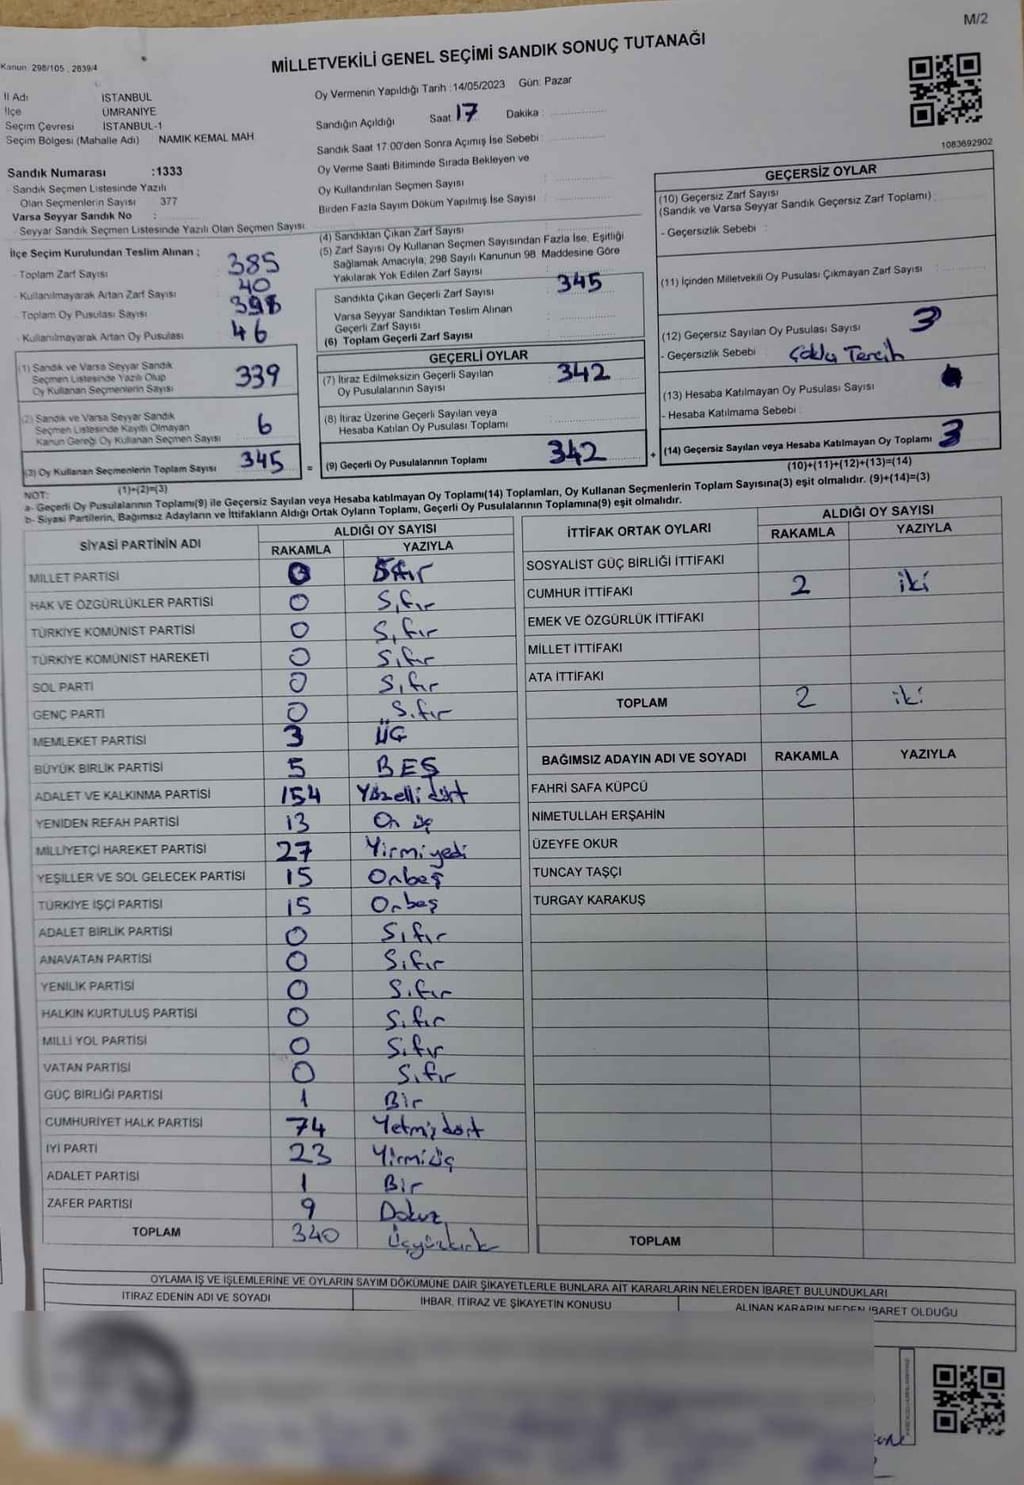 M/2
Kanun: 298/105 , 2839/4
MİLLETVEKİLİ GENEL SEÇİMİ SANDIK SONUÇ TUTANAĞI
İl Adı İSTANBUL
İlçe ÜMRANİYE
Seçim Çevresi İSTANBUL-1
Seçim Bölgesi (Mahalle Adı) NAMIK KEMAL MAH
Sandık Numarası :1333
- Sandık Seçmen Listesinde Yazılı
Olan Seçmenlerin Sayısı 377
Varsa Seyyar Sandık No :
- Seyyar Sandık Seçmen Listesinde Yazılı Olan Seçmen Sayısı
İlçe Seçim Kurulundan Teslim Alınan ;
- Toplam Zarf Sayısı 385
- Kullanılmayarak Artan Zarf Sayısı 40
- Toplam Oy Pusulası Sayısı
- Kullanılmayarak Artan Oy Pusulası 46
(1) Sandık ve Varsa Seyyar Sandık
Seçmen Listesinde Yazılı Olup
Oy Kullanan Seçmenlerin Sayısı 339
(2) Sandık ve Varsa Seyyar Sandık
Seçmen Listesinde Kayıtlı Olmayan
Kanun Gereği Oy Kullanan Seçmen Sayısı 6
(3) Oy Kullanan Seçmenlerin Toplam Sayısı 345
(1)+(2)=(3)
Oy Vermenin Yapıldığı Tarih :14/05/2023 Gün: Pazar
Sandığın Açıldığı Saat 17 Dakika
Sandık Saat 17:00'den Sonra Açımış İse Sebebi
Oy Verme Saati Bitiminde Sırada Bekleyen ve
Oy Kullandırılan Seçmen Sayısı
Birden Fazla Sayım Döküm Yapılmış İse Sayısı
(4) Sandıktan Çıkan Zarf Sayısı
(5) Zarf Sayısı Oy Kullanan Seçmen Sayısından Fazla İse, Eşitliği
Sağlamak Amacıyla; 298 Sayılı Kanunun 98. Maddesine Göre
Yakılarak Yok Edilen Zarf Sayısı
Sandıkta Çıkan Geçerli Zarf Sayısı 345
Varsa Seyyar Sandıktan Teslim Alınan
Geçerli Zarf Sayısı
(6) Toplam Geçerli Zarf Sayısı
GEÇERLİ OYLAR
(7) İtiraz Edilmeksizin Geçerli Sayılan
Oy Pusulalarının Sayısı 342
(8) İtiraz Üzerine Geçerli Sayılan veya
Hesaba Katılan Oy Pusulası Toplamı
= (9) Geçerli Oy Pusulalarının Toplamı 342 +
1083692902
GEÇERSİZ OYLAR
(10) Geçersiz Zarf Sayısı
(Sandık ve Varsa Seyyar Sandık Geçersiz Zarf Toplamı)
- Geçersizlik Sebebi
(11) İçinden Milletvekili Oy Pusulası Çıkmayan Zarf Sayısı
(12) Geçersiz Sayılan Oy Pusulası Sayısı 3
- Geçersizlik Sebebi Çoklu Tercih
(13) Hesaba Katılmayan Oy Pusulası Sayısı
- Hesaba Katılmama Sebebi
(14) Geçersiz Sayılan veya Hesaba Katılmayan Oy Toplamı 3
(10)+(11)+(12)+(13)=(14)
NOT:
a- Geçerli Oy Pusulalarının Toplamı(9) ile Geçersiz Sayılan veya Hesaba katılmayan Oy Toplamı(14) Toplamları, Oy Kullanan Seçmenlerin Toplam Sayısına(3) eşit olmalıdır. (9)+(14)=(3)
b- Siyasi Partilerin, Bağımsız Adayların ve İttifakların Aldığı Ortak Oyların Toplamı, Geçerli Oy Pusulalarının Toplamına(9) eşit olmalıdır.
SİYASİ PARTİNİN ADI ALDIĞI OY SAYISI
RAKAMLA YAZIYLA
MİLLET PARTİSİ 0 Sıfır
HAK VE ÖZGÜRLÜKLER PARTİSİ 0 Sıfır
TÜRKİYE KOMÜNİST PARTİSİ 0 Sıfır
TÜRKİYE KOMÜNİST HAREKETİ 0 Sıfır
SOL PARTİ 0 Sıfır
GENÇ PARTİ 0 Sıfır
MEMLEKET PARTİSİ 3 ÜÇ
BÜYÜK BİRLİK PARTİSİ 5 BEŞ
ADALET VE KALKINMA PARTİSİ 154 Yüzellidört
YENİDEN REFAH PARTİSİ 13 On üç
MİLLİYETÇİ HAREKET PARTİSİ 27 Yirmiyedi
YEŞİLLER VE SOL GELECEK PARTİSİ 15 Onbeş
TÜRKİYE İŞÇİ PARTİSİ 15 Onbeş
ADALET BİRLİK PARTİSİ 0 Sıfır
ANAVATAN PARTİSİ 0 Sıfır
YENİLİK PARTİSİ 0 Sıfır
HALKIN KURTULUŞ PARTİSİ 0 Sıfır
MİLLİ YOL PARTİSİ 0 Sıfır
VATAN PARTİSİ 0 Sıfır
GÜÇ BİRLİĞİ PARTİSİ 1 Bir
CUMHURİYET HALK PARTİSİ 74 Yetmişdört
İYİ PARTİ 23 Yirmiüç
ADALET PARTİSİ 1 Bir
ZAFER PARTİSİ 9 Dokuz
TOPLAM 340 Üçyüzkırk
İTTİFAK ORTAK OYLARI ALDIĞI OY SAYISI
RAKAMLA YAZIYLA
SOSYALİST GÜÇ BİRLİĞİ İTTİFAKI
CUMHUR İTTİFAKI 2 iki
EMEK VE ÖZGÜRLÜK İTTİFAKI
MİLLET İTTİFAKI
ATA İTTİFAKI
TOPLAM 2 iki
BAĞIMSIZ ADAYIN ADI VE SOYADI RAKAMLA YAZIYLA
FAHRİ SAFA KÜPCÜ
NİMETULLAH ERŞAHİN
ÜZEYFE OKUR
TUNCAY TAŞÇI
TURGAY KARAKUŞ
TOPLAM
OYLAMA İŞ VE İŞLEMLERİNE VE OYLARIN SAYIM DÖKÜMÜNE DAİR ŞİKAYETLERLE BUNLARA AİT KARARLARIN NELERDEN İBARET BULUNDUKLARI
İTİRAZ EDENİN ADI VE SOYADI İHBAR, İTİRAZ VE ŞİKAYETİN KONUSU ALINAN KARARIN NEDEN İBARET OLDUĞU